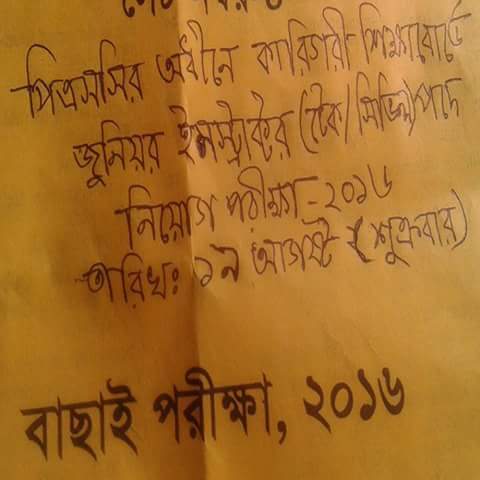 পিএসসির অধীনে কারিগরী শিক্ষাবোর্ডে
জুনিয়র ইনস্ট্রাক্টর (টেক/সিভিল)পদে
নিয়োগ পরীক্ষা-২০১৬
তারিখঃ ১৯ আগষ্ট (শুক্রবার)
বাছাই পরীক্ষা, ২০১৬